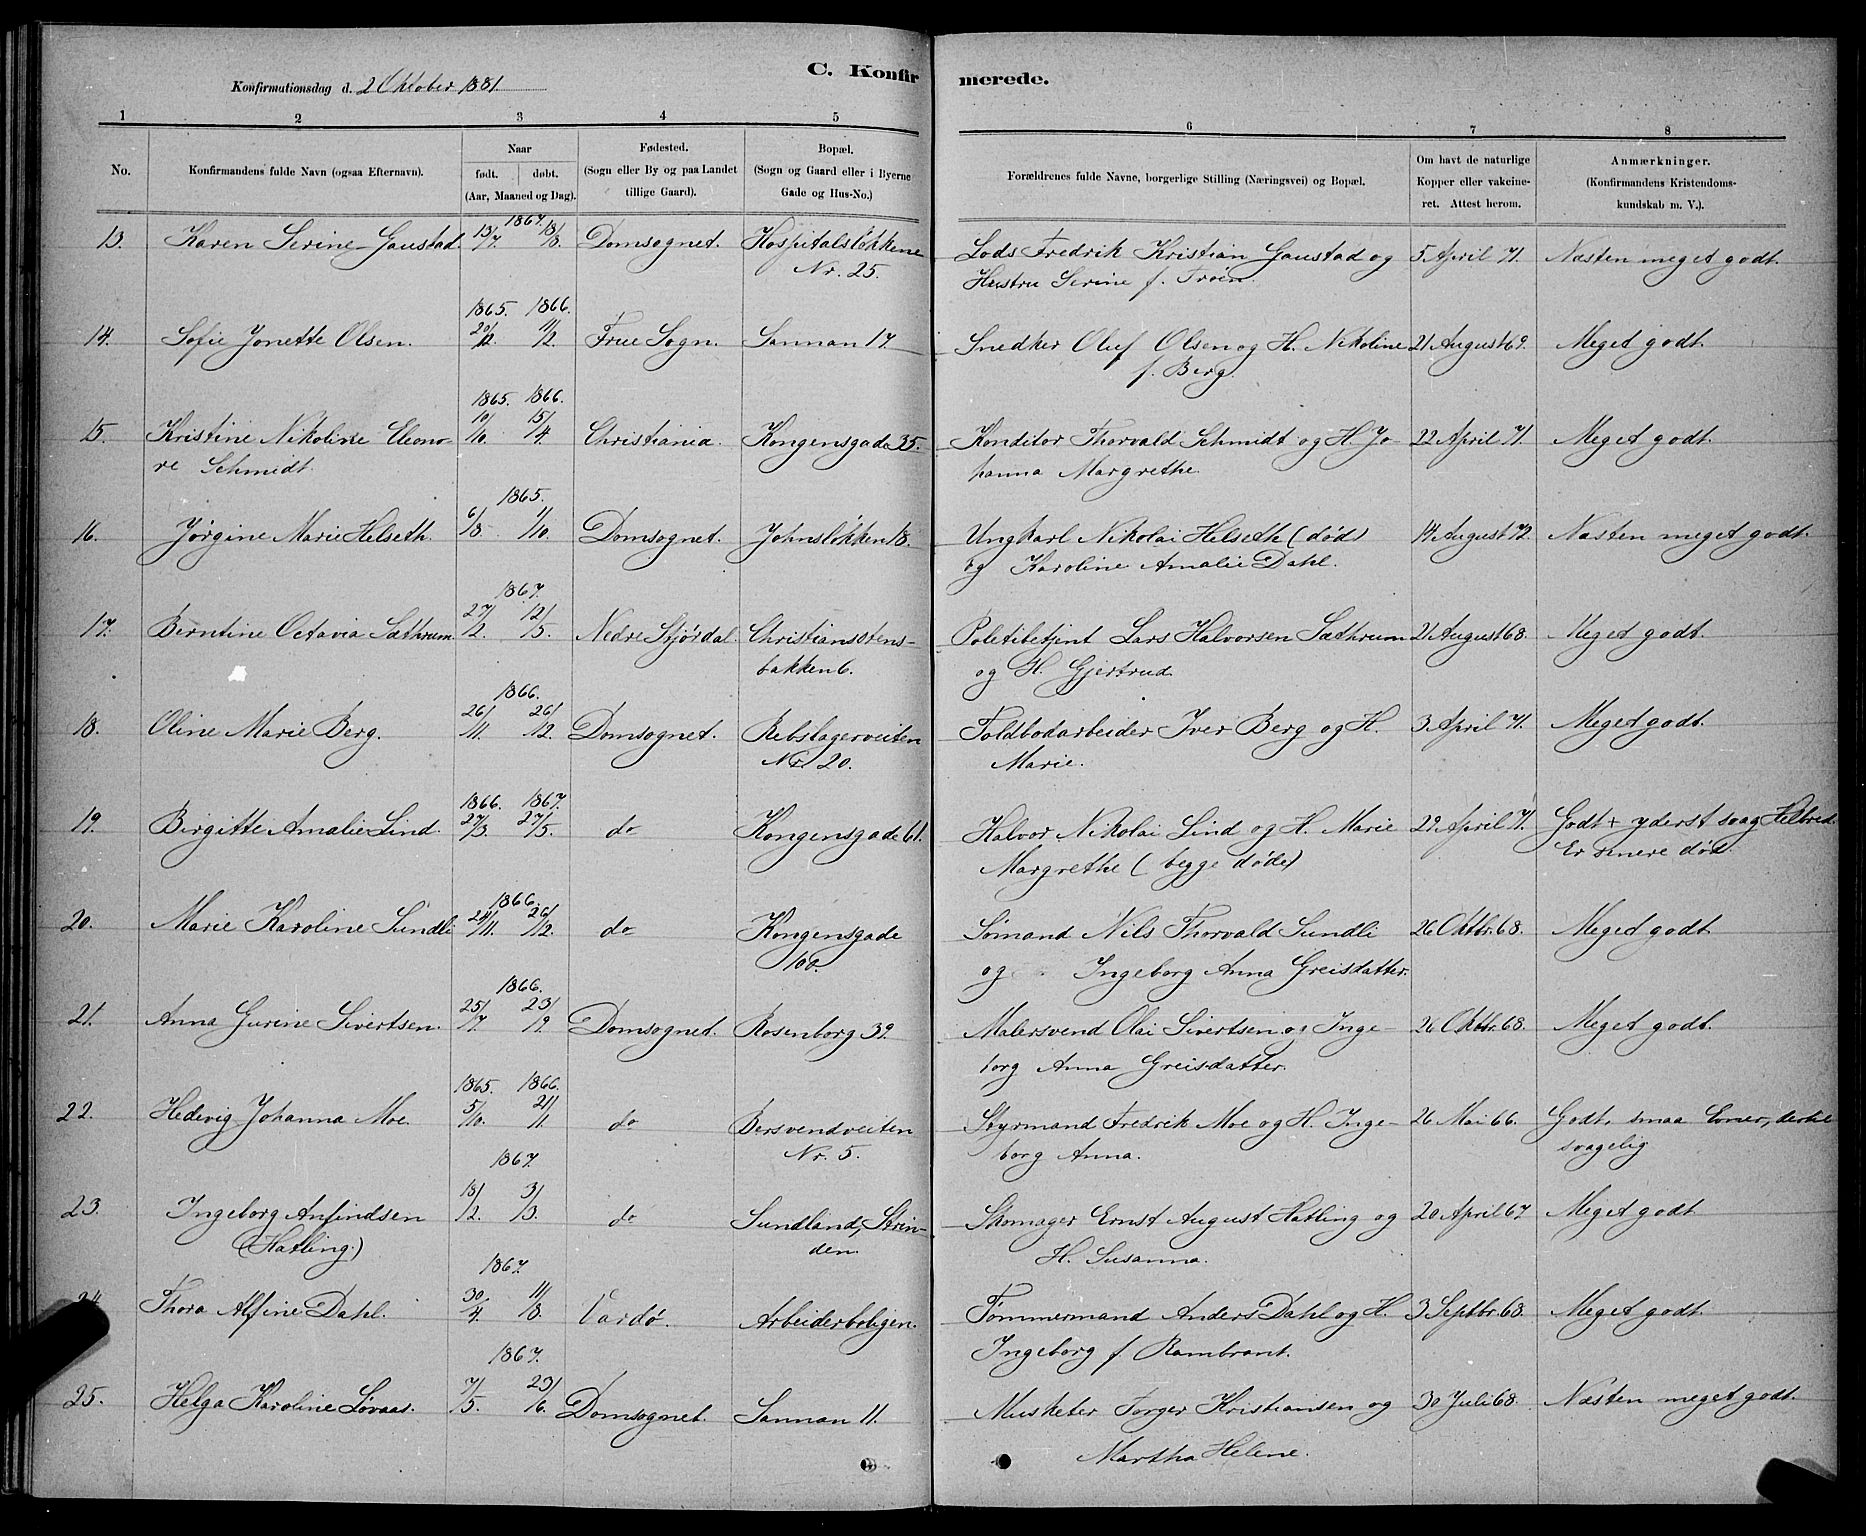 C. Konfirmerede.
Konfirmationsdag d. 2 Oktober 1881.
1 2 3 4 5 6 7 8
No. Konfirmandens fulde Navn (ogsaa Efternavn). Naar født. døbt. (Aar, Maaned og Dag). Fødested. (Sogn eller By og paa Landet tillige Gaard). Bopæl. (Sogn og Gaard eller i Byerne Gade og Hus-No.) Forældrenes fulde Navne, borgerlige Stilling (Næringsvei) og Bopæl. Om havt de naturlige Kopper eller vakcineret. Attest herom. Anmærkninger. (Konfirmandens Kristendomskundskab m. V.).
1867.
13. Karen Serine Gaustad. 13/7. 18/8. Domsognet. Hospitalsløkkene Lods Fredrik Kristian Gaustad og 5 April 71. Næsten meget godt.
Nr. 25. Hustru Serine f. Trøen.
1865. 1866.
14. Sofie Jonette Olsen. 20/12. 11/2. Frue Sogn. Sannan 17. Snedker Oluf Olsen og H. Nikoline 21 August 69. Meget godt.
f. Berg.
1865. 1866.
15. Kristine Nikoline Eleono- 10/10. 15/4. Christiania. Kongensgade 35. Konditor Thorvald Schmidt og H. Jo 22 April 71. Meget godt.
re Schmidt. hanna Margrethe.
1865.
16. Jørgine Marie Helseth. 6/8. 1/10. Domsognet. Johnsløkken 18. Ungkarl Nikolai Helseth (død) 14 August 72. Næsten meget godt.
og Karoline Amalie Dahl.
1867.
17. Berntine Octavia Sæthrum 27/2. 12/5. Nedre Stjørdal. Christianstens- Politibetjent Lars Halvorsen Sæthrum 21 August 68. Meget godt.
bakken 6. og H. Gjertrud.
1866.
18. Oline Marie Berg. 26/11. 26/12. Domsognet. Rebslagerveiten Toldbodarbeider Iver Berg og H. 3 April 71. Meget godt.
Nr. 20. Marie.
1866. 1867.
19. Birgitte Amalie Lind. 27/3. 27/5. do Kongensgade 61. Halvor Nikolai Lind og H. Marie 29 April 71. Godt + yderst svag Helbred.
Margrethe (begge døde) Er senere død.
1866.
20. Marie Karoline Sundli 24/11. 26/12. do Kongensgade Sømand Nils Thorvald Sundli 26 Oktbr. 68. Meget godt.
100. og Ingeborg Anna Greisdatter.
1866.
21. Anna Gurine Sivertsen. 25/7. 23/9. Domsognet. Rosenborg 39. Malersvend Olai Sivertsen og Inge- 26 Oktbr. 68. Meget godt.
borg Anna Greisdatter.
1865. 1866.
22. Hedevig Johanna Moe. 5/10. 21/1. do Bersvendveiten Styrmand Fredrik Moe og H. Inge- 26 Mai 66. Godt, smaa Evner, dertil
Nr. 5. borg Anna. svagelig
1867.
23. Ingeborg Anfindsen 18/2. 3/3. do Sundland, Strin- Skomager Ernst August Hatling og 20 April 67. Meget godt.
(Hatling.) den. H. Susanna.
1867.
24. Thora Alfine Dahl. 30/4. 11/8. Vardø. Arbeiderboligen. Tømmermand Anders Dahl og H. 3 Septbr. 68. Meget godt.
Ingeborg f. Rambrant.
1867.
25. Helga Karoline Løvaas. 7/5. 23/6. Domsognet. Sannan 11. Musketer Torger Kristiansen og 30 Juli 68. Næsten meget godt.
Martha Helene.